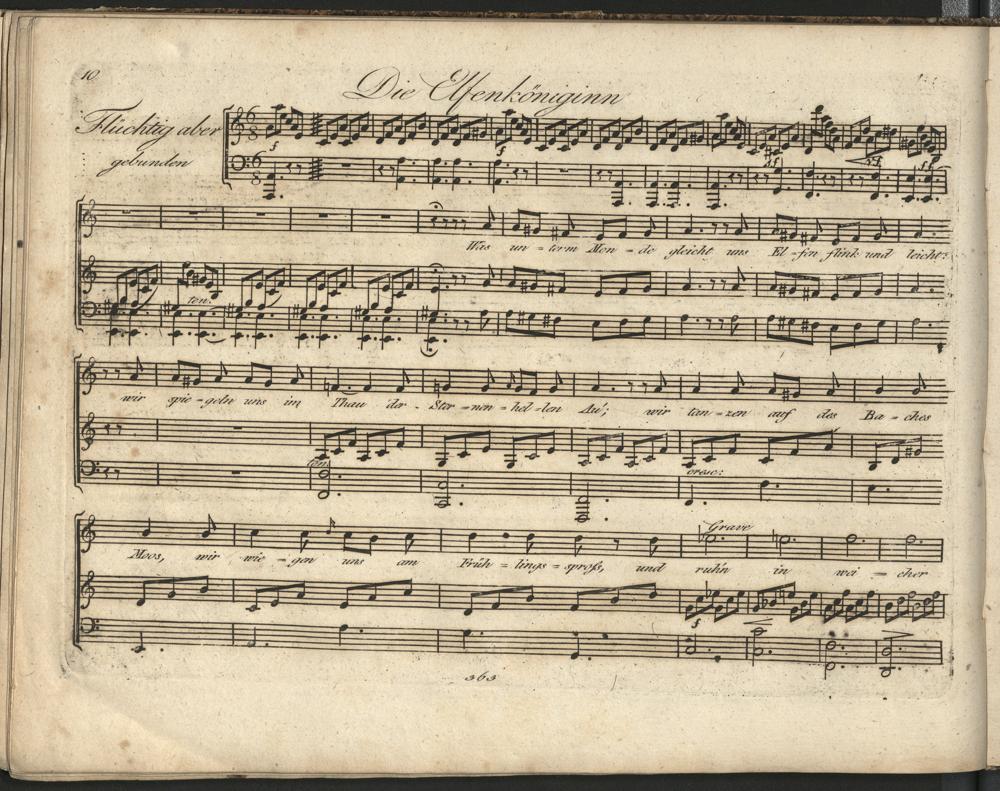 10
Die Elfenköniginn
Flüchtig aber
gebunden
Was un - term Mon - de gleicht uns El - fen flink und leicht?
ten:
wir spie - geln uns im Thau der Ster - nen - hel - len Au'; wir tan - zen auf des Ba - ches
ten:
cresc:
Grave
Moos, wir wie - gen uns am Früh - lings - sproß, und ruhn in wei - cher
363